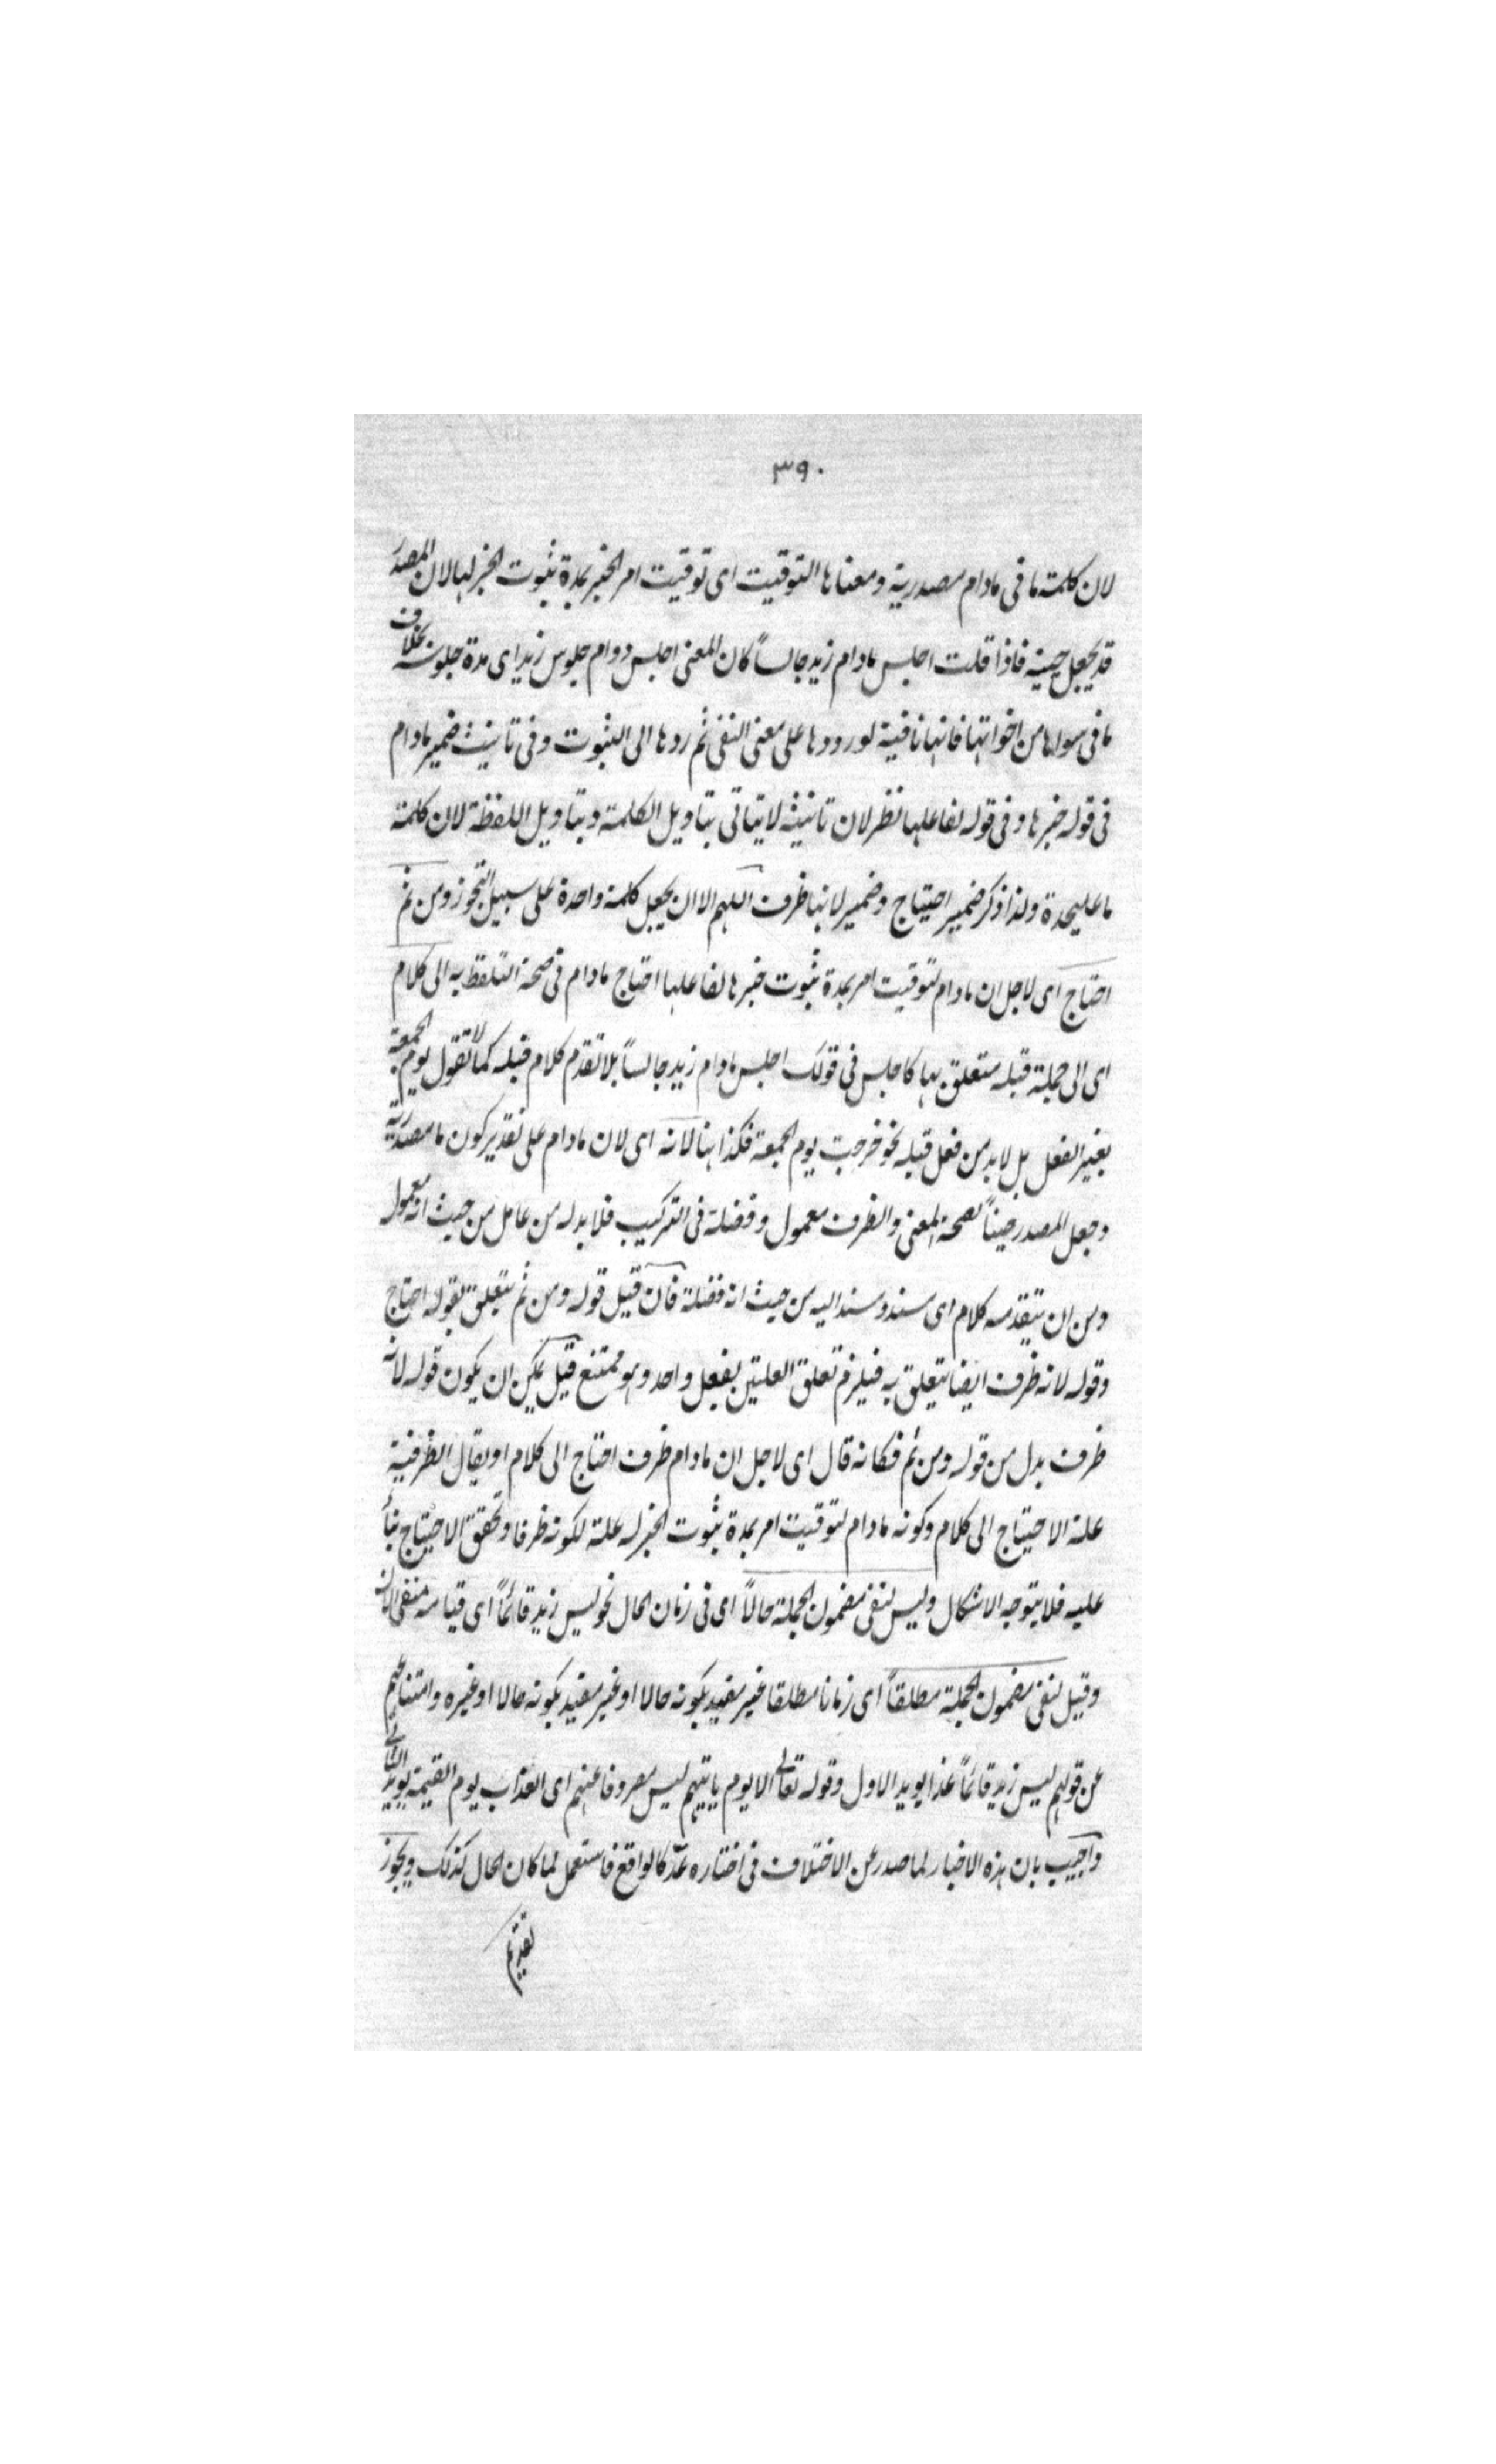 ٣٩٠
لان كلمة ما فى مادام مصدرية ومعناها التوقيت اى توقيت امر الخبر بمدة ثبوت الخبر لها لان المصدر
قد يجعل حينه فاذا قلت اجلس مادام زيد جالساً كان المعنى اجلس دوام جلوس زيد اى مدة جلوسه بخلاف
ما فى سواها من اخواتها فانها نافية لورودها على معنى النفى ثم ردها الى الثبوت وفى تانيث ضمير مادام
فى قوله خبرها وفى قوله لفاعلها نظر لان تانيثه لا يتاتى بتاويل الكلمة وبتاويل اللفظة لان كلمة
ما عليحدة ولذا ذكر ضمير احتياج وضمير لانها ظرف اللهم الا ان يجعل كلمة واحدة على سبيل التجوز ومن ثم
احتاج اى لاجل ان مادام لتوقيت امر بمدة ثبوت خبرها لفاعلها احتاج مادام فى صحة التلفظ به الى كلام
اى الى جملة قبله متعلق بها كاجلس فى قولك اجلس مادام زيد جالساً بلا تقدم كلام قبله كما لا تقول يوم الجمعة
بغير الفعل بل لابد من فعل قبله نحو خرجت يوم الجمعة فكذا هنا لانه اى لان مادام على تقدير كون ما مصدرية
وجعل المصدر حيناً لصحة المعنى والظرف معمول وفضلة فى التركيب فلابد له من عامل من حيث انه معمول
ومن ان يتقدمه كلام اى مسند ومسند اليه من حيث انه فضلة فان قيل قوله ومن ثم يتعلق بقوله احتاج
وقوله لانه ظرف ايضا يتعلق به فيلزم تعلق العلتين بفعل واحد وهو ممتنع قيل يمكن ان يكون قوله لانه
ظرف بدل من قوله ومن ثم فكانه قال اى لاجل ان مادام ظرف احتاج الى كلام او يقال الظرفية
علة الاحتياج الى كلام وكونه مادام لتوقيت امر بمدة ثبوت الخبر له علة لكونه ظرفا وتحقق الاحتياج بناءً
عليه فلا يتوجه الاشكال وليس لنفى مضمون الجملة حالاً اى فى زمان الحال نحو ليس زيد قائماً اى قيامه منفى الان
وقيل لنفى مضمون الجملة مطلقاً اى زمانا مطلقا غير مقيد بكونه حالا او غير مقيد بكونه حالا او غيره وامتناعهم
عن قولهم ليس زيد قائماً غدا يويد الاول وقوله تعالى الا يوم ياتيهم ليس مصروفا عنهم اى العذاب يوم القيمة يويد الثانى
واجيب بان هذه الاخبار لما صدر عن الاختلاف فى اختاره عدّ كالواقع فاستعمل لما كان الحال كذلك ويجوز
تقديم